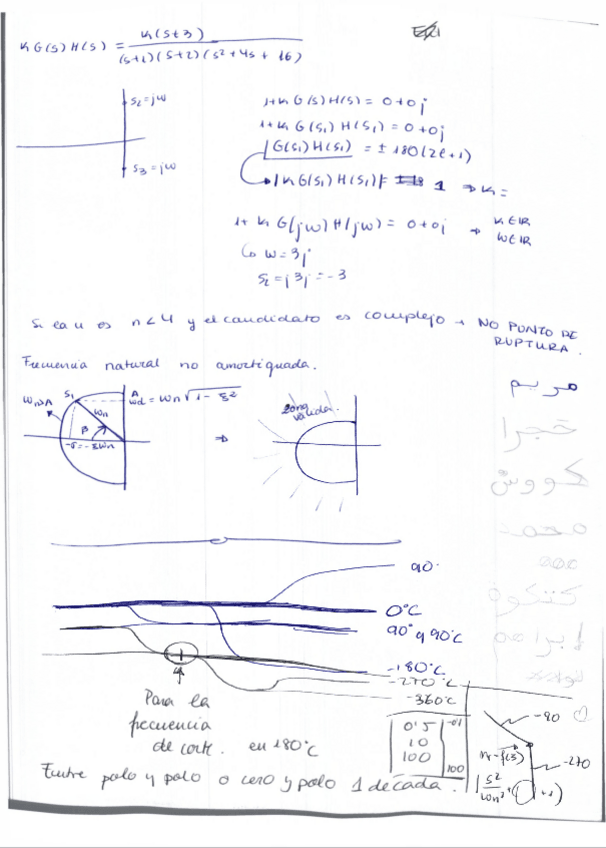 K G(s) H(s) = K(s+3) / (s+1)(s+2)(s²+4s+16)
s₂=jω
s₃=jω
1+K G(s)H(s) = 0+0j
1+K G(s₁)H(s₁) = 0+0j
G(s₁)H(s₁) = ±180(2ℓ+1)
|K G(s₁)H(s₁)| = 1 ⇒ K =
1+K G(jω)H(jω) = 0+0j ⇒ K∈ℝ
ω∈ℝ
ω=3j
s₂=j3j=-3
n<4 y el candidato es complejo → NO PUNTO DE
RUPTURA.
Frecuencia natural no amortiguada.
ωnA
s₁
ωn
β
-σ=-ξωn
ωd = ωn√1-ξ²
⇒
zona
válida.
مريم
كووش
محمد
90·
0°C
90° y 90°C
-180°C
-270°C
-360°C
Para la
frecuencia
de corte. en 180°C
0'5
10
100
100
-90
-270
s²/ωn²
Entre polo y polo o cero y polo 1 década.